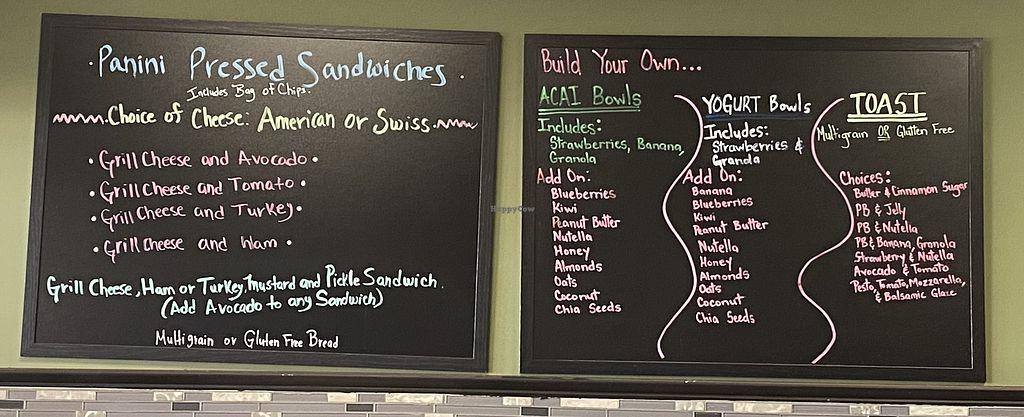 ·Panini Pressed Sandwiches·
Includes Bag of Chips.
Choice of Cheese: American or Swiss.
• Grill Cheese and Avocado •
• Grill Cheese and Tomato •
• Grill Cheese and Turkey •
• Grill Cheese and Ham •
Grill Cheese, Ham or Turkey, Mustard and Pickle Sandwich.
(Add Avocado to any Sandwich)
Multigrain or Gluten Free Bread
Build Your Own...
ACAI Bowls
Includes:
Strawberries, Banana,
Granola
Add On:
Blueberries
Kiwi
Peanut Butter
Nutella
Honey
Almonds
Oats
Coconut
Chia Seeds
YOGURT Bowls
Includes:
Strawberries &
Granola
Add On:
Banana
Blueberries
Kiwi
Peanut Butter
Nutella
Honey
Almonds
Oats
Coconut
Chia Seeds
TOAST
Multigrain OR Glutten Free
Choices:
Butter & Cinnamon Sugar
PB & Jelly
PB & Nutella
PB & Banana, Granola
Strawberry & Nutella
Avocado & Tomato
Pesto, Tomato, Mozzarella,
& Balsamic Glaze
HappyCow